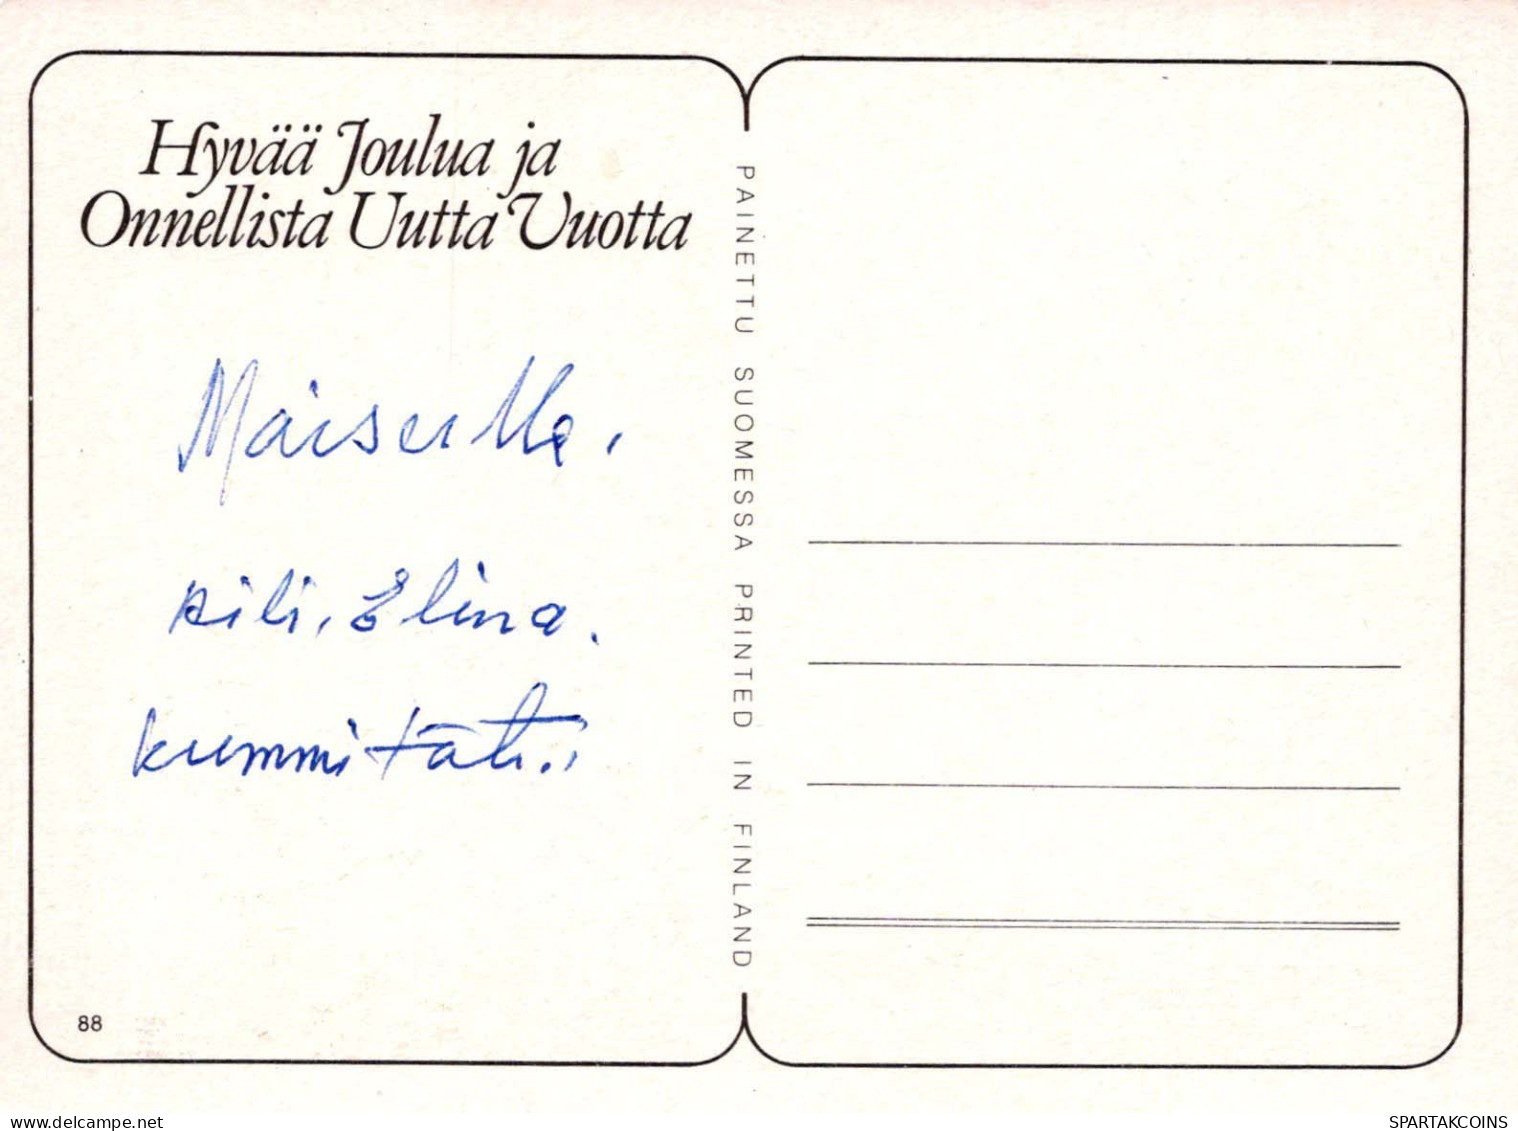 Hyvää Joulua ja
Onnellista Uutta Vuotta
Maiselle,
Elina.
kummitäti
88
PAINETTU SUOMESSA PRINTED IN FINLAND
delcampe.net
SPARTAKCOINS